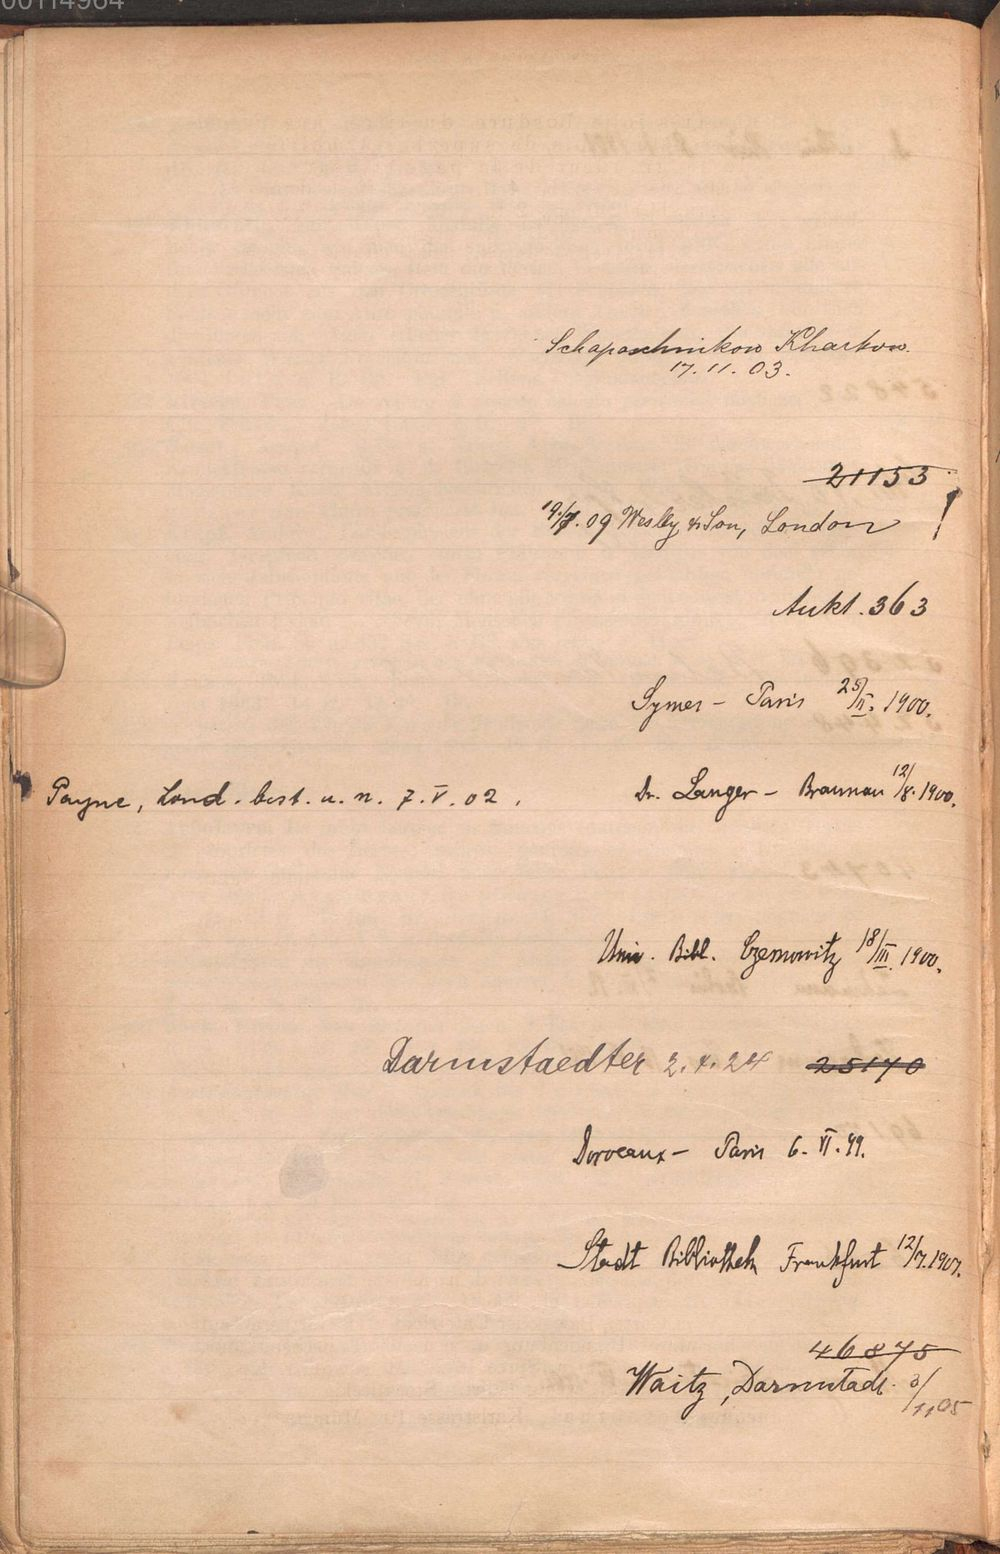 00114964
Schaposchnikow Kharkow.
17.11.03.
21153
19./7. 09 Wesley & Son, London !
Aukt. 363
Symes – Paris 25/II. 1900.
Payne, Lond. best. u. n. 7.V.02.
Dr. Langer – Braunau 12/8. 1900.
Univ. Bibl. Czernowitz 18/III. 1900.
Darmstaedter 2.4.24 25170
Dorveaux – Paris 6. VI. 99.
Stadt Bibliothek Frankfurt 12/7. 1907.
46875
Waitz, Darmstadt. 3/11 05